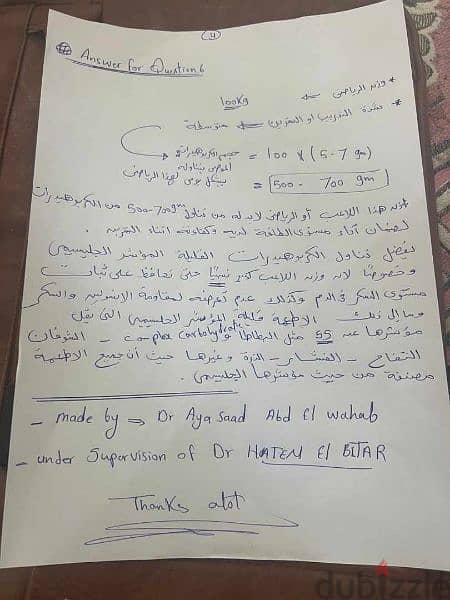 ٧
* Answer for Question 6
* وزنه الرياضى ← 100Kg
* شدة التدريب أو التمرين ← متوسطة
حجم الكربوهيدرات = 100 × (5 - 7 gm)
الموصى بتناوله
بشكل يومى لهذا الرياضى = 500 - 700 gm
هذا اللاعب أو الرياضى لابد له من تناول 500-700gm من الكربوهيدرات
لضمان أداء مستوى الطاقة لديه وكفاءته أثناء التمرين .
يفضل تناول الكربوهيدرات القليلة المؤشر الجليسيمى
وخصوصًا لأنه وزنه اللاعب كبير نسبيًا حتى نحافظ على ثبات
مستوى السكر فى الدم وكذلك عدم تعرضه لمقاومة الانسولين والسكر
ومثال ذلك الاطعمة قليلة المؤشر الجليسيمى التى يقل
مؤشرها عن 55 مثل البطاطا complex carbohydrate - الشوفان
التفاح - الفشار - الذرة وغيرها حيث أن جميع الاطعمة
مصنفة من حيث مؤشرها الجليسيمى .
- made by → Dr Aya Saad Abd El wahab
- under Supervision of Dr HATEM El BITAR
Thanks alot
dubizzle